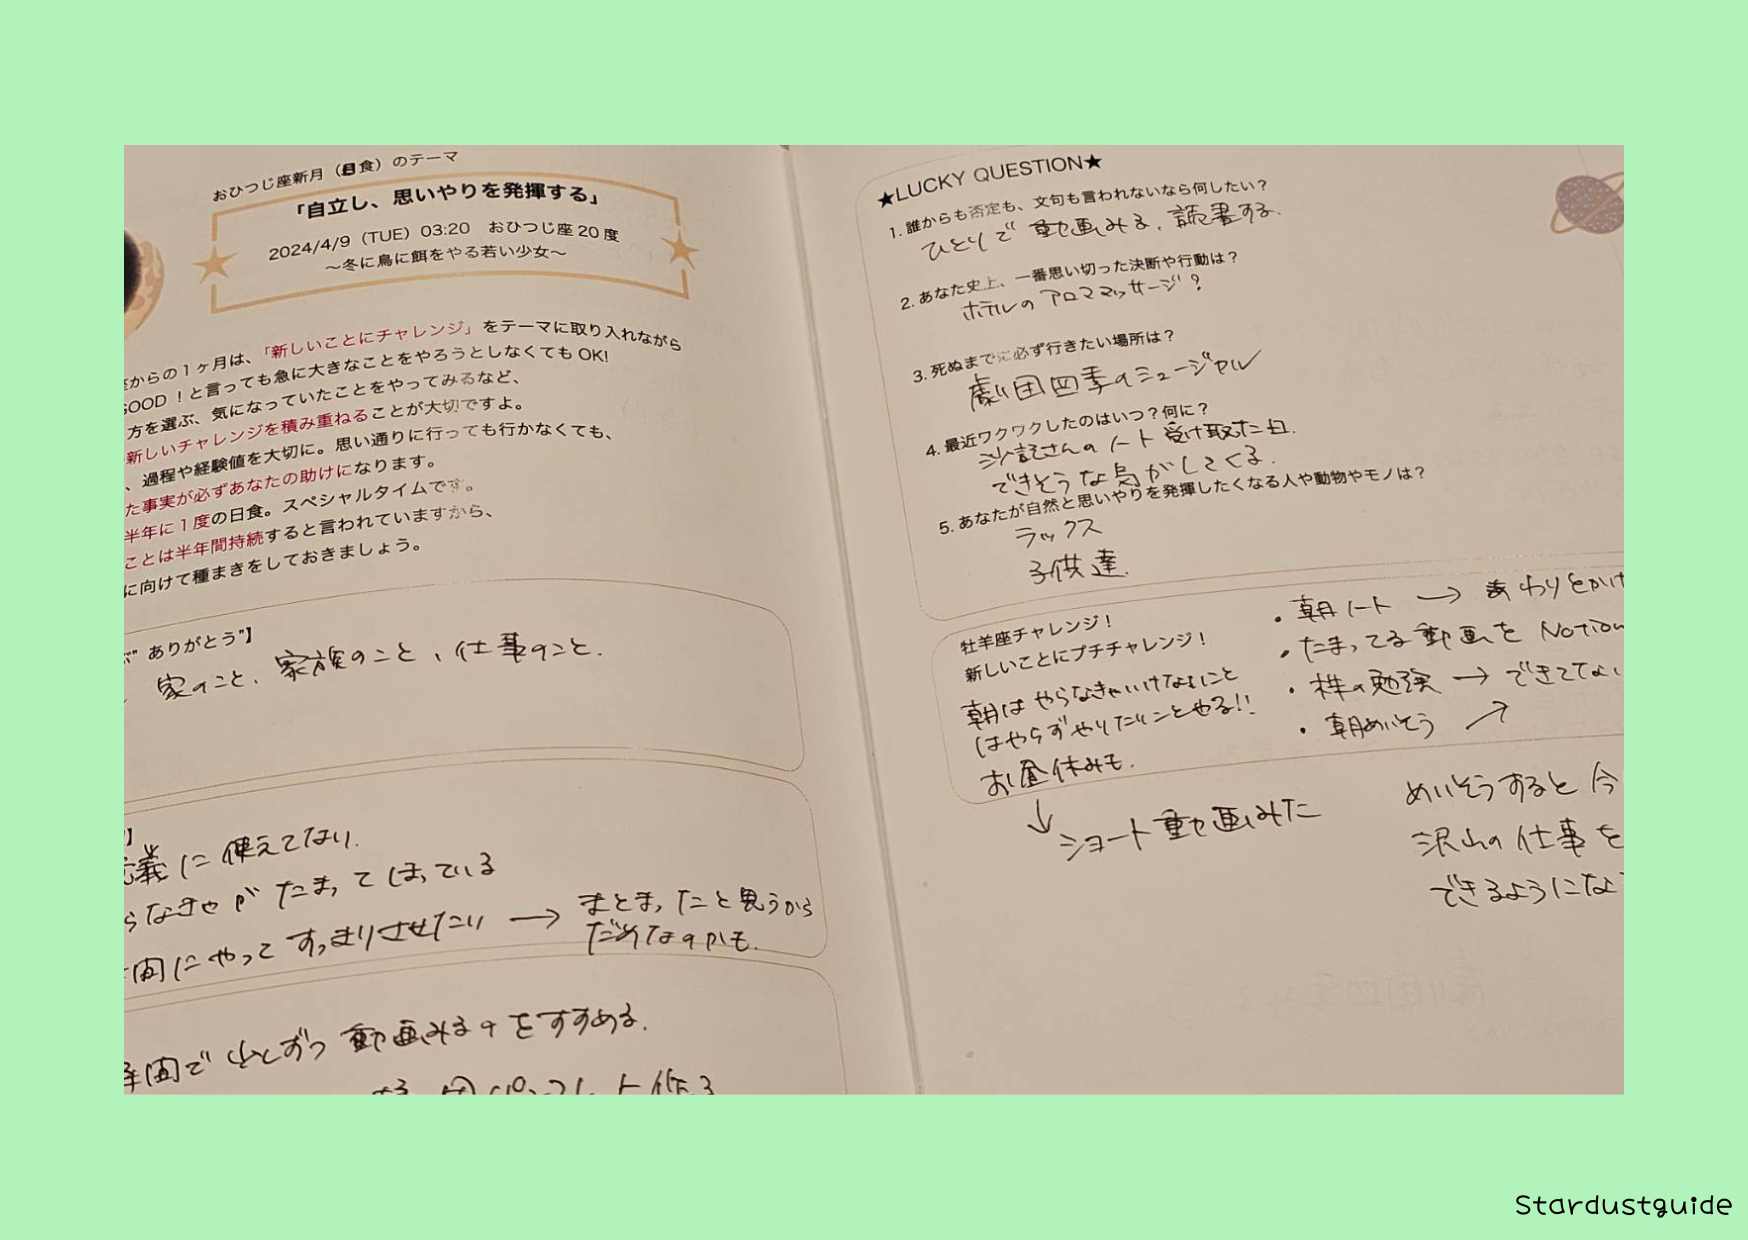 おひつじ座新月（日食）のテーマ
「自立し、思いやりを発揮する」
2024/4/9（TUE）03:20 おひつじ座 20 度
〜冬に鳥に餌をやる若い少女〜
からの 1 ヶ月は、「新しいことにチャレンジ」をテーマに取り入れながら
GOOD ！と言っても急に大きなことをやろうとしなくても OK!
方を選ぶ、気になっていたことをやってみるなど、
新しいチャレンジを積み重ねることが大切ですよ。
、過程や経験値を大切に。思い通りに行っても行かなくても、
た事実が必ずあなたの助けになります。
半年に 1 度の日食。スペシャルタイムです。
ことは半年間持続すると言われていますから、
に向けて種まきをしておきましょう。
ありがとう"】
家のこと、家族のこと、仕事のこと.
】
義に使えてない.
らなきゃがたまってしまっている
間にやってすっきりさせたい → まとまったと思うから
だめなのかも.
間でひとずつ動画みるのをすすめる.
★LUCKY QUESTION★
1. 誰からも否定も、文句も言われないなら何したい？
ひとりで動画みる、読書する.
2. あなた史上、一番思い切った決断や行動は？
ホテルのアロママッサージ？
3. 死ぬまでに必ず行きたい場所は？
劇団四季のミュージカル
4. 最近ワクワクしたのはいつ？何に？
沙記さんのノート受け取った日.
できそうな気がしてくる.
5. あなたが自然と思いやりを発揮したくなる人や動物やモノは？
ラックス
子供達.
牡羊座チャレンジ！
新しいことにプチチャレンジ！
朝はやらなきゃいけないこと
はやらずやりたいことやる!!
お昼休みも.
↓
ショート動画みた
・朝ノート → まわりとかけ
・たまってる動画を Notion
・株の勉強 → できてない
・朝めいそう ↗
めいそうすると今
沢山の仕事を
できるようにな
Stardustguide